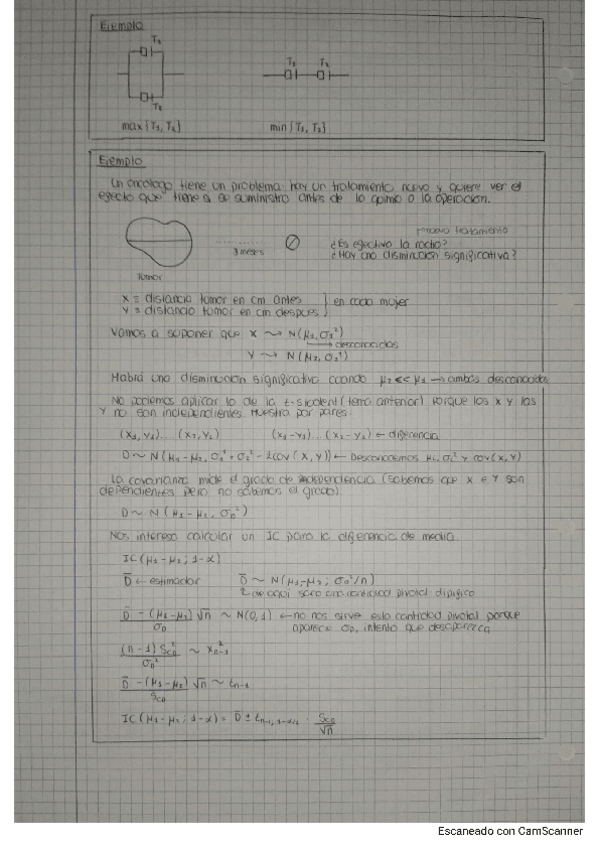 Ejemplo
T₁
T₂
T₁ T₂
max{T₁, T₂} min{T₁, T₂}
Ejemplo
Un oncólogo tiene un problema: hay un tratamiento nuevo y quiere ver el
efecto que tiene si se suministra antes de la quimio o la operación.
nuevo tratamiento
¿Es efectiva la radio?
3 meses
¿Hay una disminución significativa?
Tumor
X ≡ distancia tumor en cm antes
Y ≡ distancia tumor en cm después } en cada mujer
Vamos a suponer que X ⇝ N(μ₁, σ₁²)
desconocidos
Y ⇝ N(μ₂, σ₂²)
Habrá una disminución significativa cuando μ₂ << μ₁ → ambas desconocidas
No podemos aplicar lo de la t-student (tema anterior) porque las X y las
Y no son independientes. Muestra por pares:
(X₁, Y₁)...(X₂, Y₂) (X₁-Y₁)...(X₂-Y₂) ← diferencia
D ~ N(μ₁-μ₂, σ₁²+σ₂²-2cov(X,Y)) ← Desconocemos μᵢ, σᵢ² y cov(X,Y)
La covarianza mide el grado de independencia (sabemos que X e Y son
dependientes pero no sabemos el grado).
D ~ N(μ₁-μ₂, σ_D²)
Nos interesa calcular un IC para la diferencia de media.
IC(μ₁-μ₂; 1-α)
D̄ ← estimador D̄ ~ N(μ₁-μ₂; σ_D²/n)
de aquí sale una cantidad pivotal
D̄ - (μ₁-μ₂) √n / σ_D ~ N(0,1) ← no nos sirve esta cantidad pivotal porque
aparece σ_D, intento que desaparezca
(n-1) S_CD² / σ_D² ~ χ²ₙ₋₁
D̄ - (μ₁-μ₂) √n / S_CD ~ tₙ₋₁
IC(μ₁-μ₂; 1-α) = D̄ ± tₙ₋₁, ₁₋α/₂ · S_CD / √n
Escaneado con CamScanner